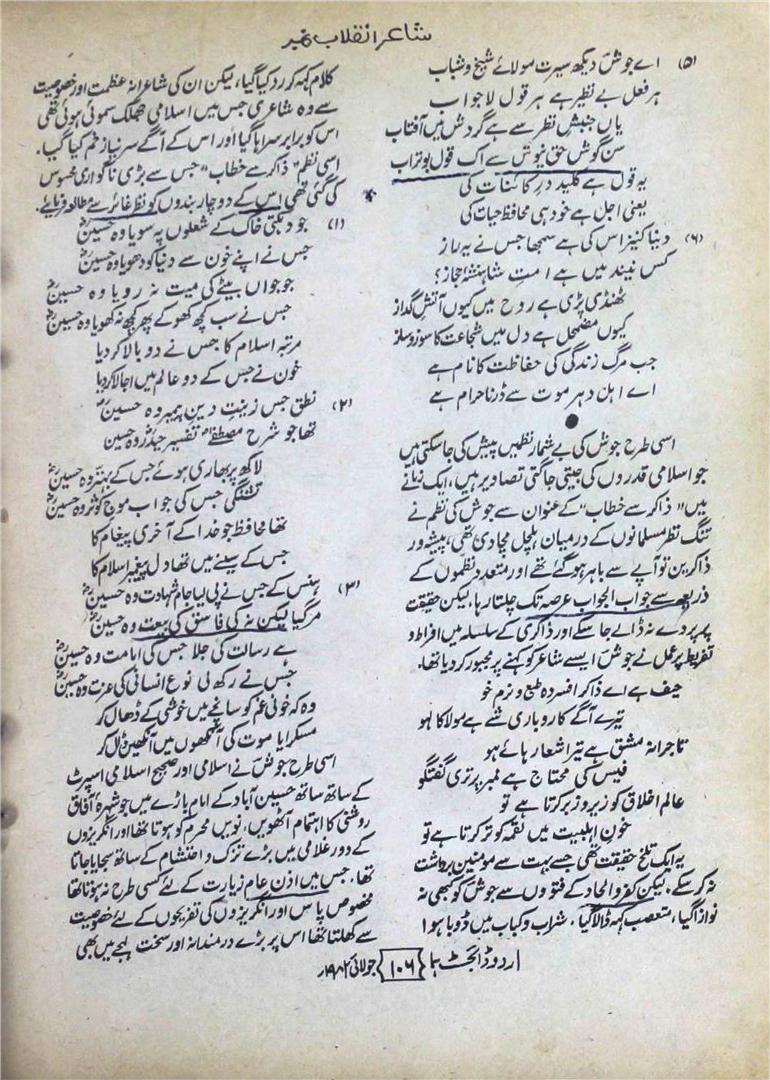 شاعر انقلاب نمبر
(۵) اے جوشؔ دیکھ سیرت مولائے شیخ و شباب
ہر فعل بے نظیر ہے ہر قول لاجواب
یاں جنبشِ نظر سے ہے گردش میں آفتاب
سن گوش حق نیوش سے اک قولِ بوتراب
یہ قول ہے کلید درِ کائنات کی
یعنی اجل ہے خود ہی محافظ حیات کی
(۶) دنیا کنیز اس کی ہے سمجھا جس نے یہ راز
کس نیند میں ہے امتِ شاہنشۂ حجاز؟
ٹھنڈی پڑی ہے روح میں کیوں آتشِ گداز
کیوں مضمحل ہے دل میں شجاعت کا سوز و ساز
جب مرگ زندگی کی حفاظت کا نام ہے
اے اہلِ دہر موت سے ڈرنا حرام ہے
اسی طرح جوش کی بے شمار نظمیں پیش کی جا سکتی ہیں
جو اسلامی قدروں کی جیتی جاگتی تصاویر ہیں، ایک زمانے
میں "ذاکر سے خطاب" کے عنوان سے جوش کی نظم نے
تنگ نظر مسلمانوں کے درمیان ہلچل مچا دی تھی، پیشہ ور
ذاکرین تو آپے سے باہر ہو گئے تھے اور متعدد نظموں کے
ذریعے سے جواب الجواب عرصہ تک چلتا رہا، لیکن حقیقت
پر پردے نہ ڈالے جا سکے اور ذاکری کے سلسلہ میں افراط و
تفریط پر عمل نے جوش ایسے شاعر کو کہنے پر مجبور کر دیا تھا۔
حیف ہے اے ذاکر افسردہ طبع و نرم خو
تیرے آگے کاروباری شے ہے مولا کا لہو
تاجرانہ مشق ہے تیرا شعار ہائے ہو
فیس کی محتاج ہے ممبر پر تری گفتگو
عالمِ اخلاق کو زیر و زبر کرتا ہے تو
خونِ اہلبیت میں لقمہ کو تر کرتا ہے تو
یہ ایک تلخ حقیقت تھی جسے بہت سے مومنین برداشت
نہ کر سکے، لیکن کفر و الحاد کے فتوؤں سے جوش کو کبھی نہ
نوازا گیا، متعصب کہہ ڈالا گیا، شراب و کباب میں ڈوبا ہوا
کلام کہہ کر رد کیا گیا، لیکن ان کی شاعرانہ عظمت اور خصوصیت
سے وہ شاعری جس میں اسلامی جھلک سموئی ہوئی تھی
اس کو برابر سراہا گیا اور اس کے آگے سر نیاز خم کیا گیا۔
اسی نظم "ذاکر سے خطاب" جس سے بڑی ناگواری محسوس
کی گئی تھی اس کے دو چار بندوں کو نظر غائر سے مطالعہ فرمائیے۔
(۱) جو دہکتی خاک کے شعلوں پہ سویا وہ حسینؓ
جس نے اپنے خون سے دنیا کو دھویا وہ حسینؓ
جو جواں بیٹے کی میت نہ رویا وہ حسینؓ
جس نے سب کچھ کھو کے پھر کچھ نہ کھویا وہ حسینؓ
مرتبہ اسلام کا جس نے دوبالا کر دیا
خون نے جس کے دو عالم میں اجالا کر دیا
(۲) نطق جس زینتِ دینِ پیمبر وہ حسینؓ
تھا جو شرح مصطفےٰؐ تفسیر حیدرؓ وہ حسین
لاکھ پر بھاری ہوئے جس کے بہتر وہ حسینؓ
تشنگی جس کی جواب موج کوثر وہ حسینؓ
تھا محافظ جو خدا کے آخری پیغام کا
جس کے سینے میں تھا دل پیغمبر اسلام کا
(۳) ہنس کے جس نے پی لیا جام شہادت وہ حسینؓ
مر گیا لیکن نہ کی فاسق کی بیعت وہ حسینؓ
ہے رسالت کی جلا جس کی امامت وہ حسینؓ
جس نے رکھ لی نوع انسانی کی عزت وہ حسینؓ
وہ کہ خونی غم کو سانچے میں خوشی کے ڈھال کر
مسکرایا موت کی آنکھوں میں آنکھیں ڈال کر
اسی طرح جوش نے اسلامی اور صحیح اسلامی اسپرٹ
کے ساتھ ساتھ حسین آباد کے امام باڑے میں جو شہرۂ آفاق
روشنی کا اہتمام آٹھویں، نویں محرم کو ہوتا تھا اور انگریزوں
کے دور غلامی میں بڑے تزک و احتشام کے ساتھ سجایا جاتا
تھا۔ جس میں اذن عام زیارت کے لئے کسی طرح نہ ہوتا تھا
مخصوص پاس اور انگریزوں کی تفریحوں کے لئے خصوصیت
سے کھلتا تھا اس پر بڑے درمندانہ اور سخت لہجے میں بھی
اردو ڈائجسٹ ہما {۱۰۶} جولائی ۱۹۸۲ء